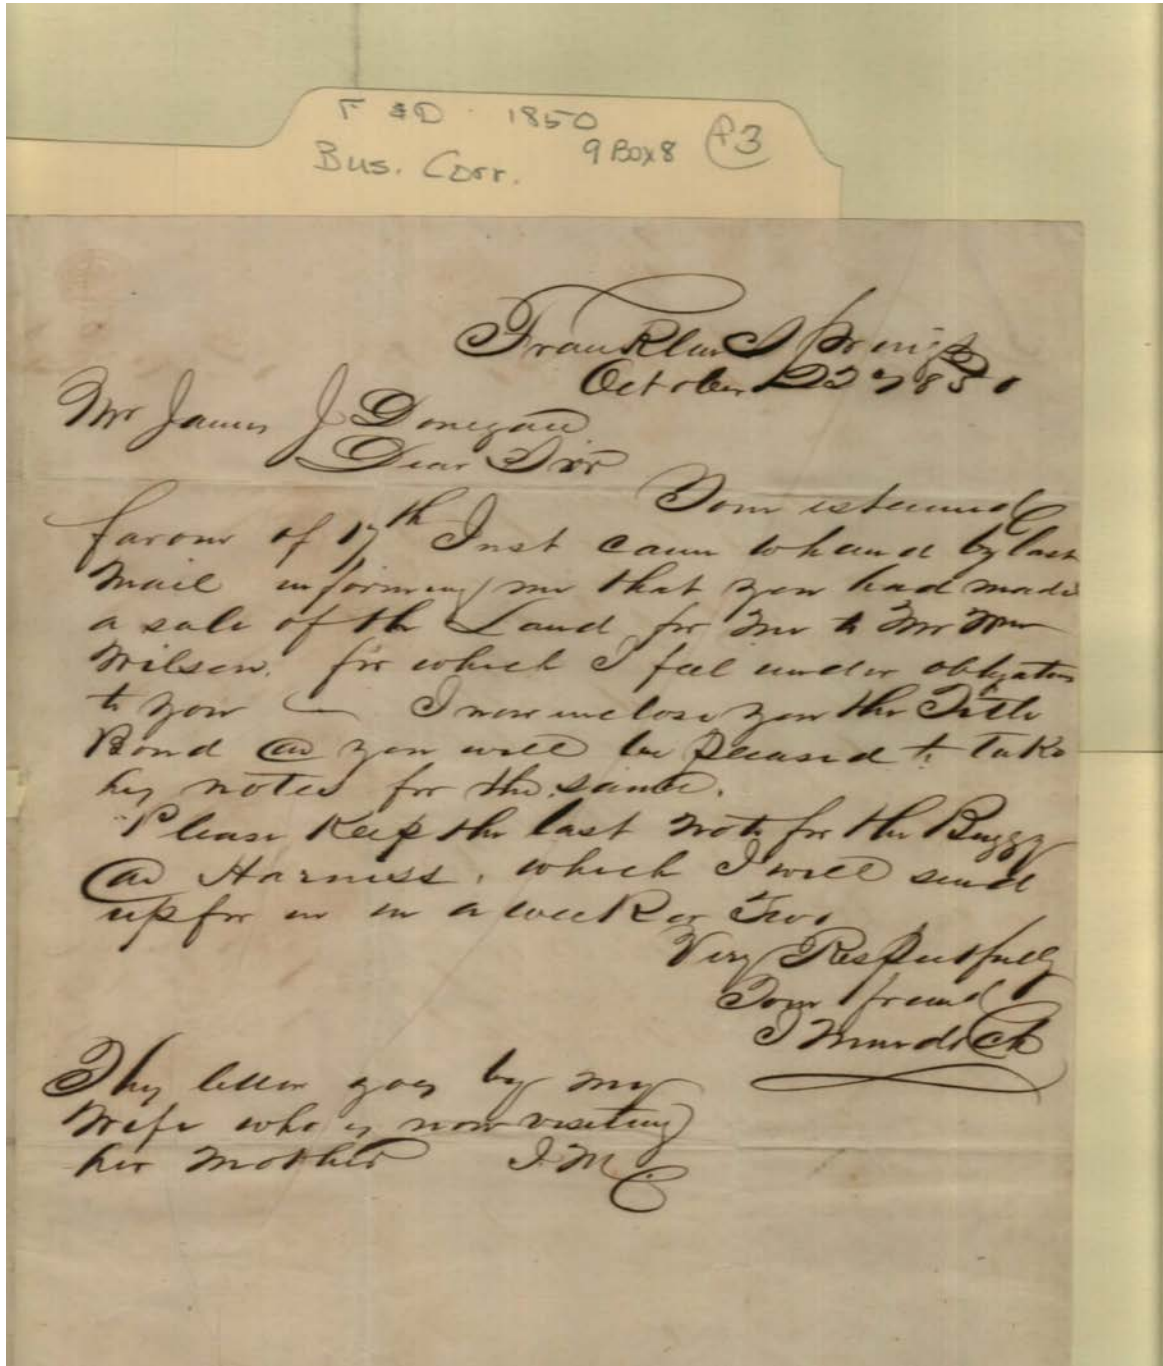 F & D · 1850
9 Box 8 P3
Bus. Corr.
Franklin Springs
October 22 1850
Mr James J Donegan
Dear Sir
Your esteemed
favour of 17th Inst came to hand by last
Mail informing me that you had made
a sale of the Land for me to Mr Wm
Wilson. for which I feel under obligation
to you — I now inclose you the Title
Bond & you will be pleased to take
his notes for the same.
Please Keep the last note for the Buggy
& Harness, which I will send
up for in a week or Two
Very Respectfully
Your friend
J Murdock
This letter goes by my
Wife who is now visiting
her Mother J. M